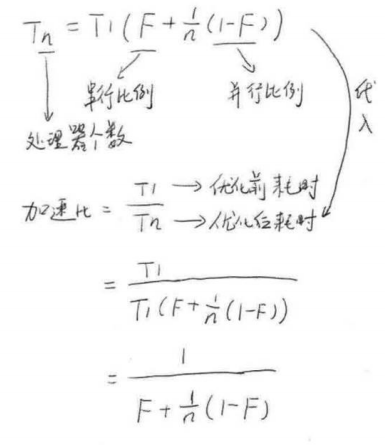 Tn = T1 ( F + 1/n (1-F) )
串行比例 并行比例 代入
处理器个数
加速比 = T1/Tn → 优化前耗时 → 优化后耗时
= T1 / T1(F + 1/n (1-F))
= 1 / F + 1/n (1-F)